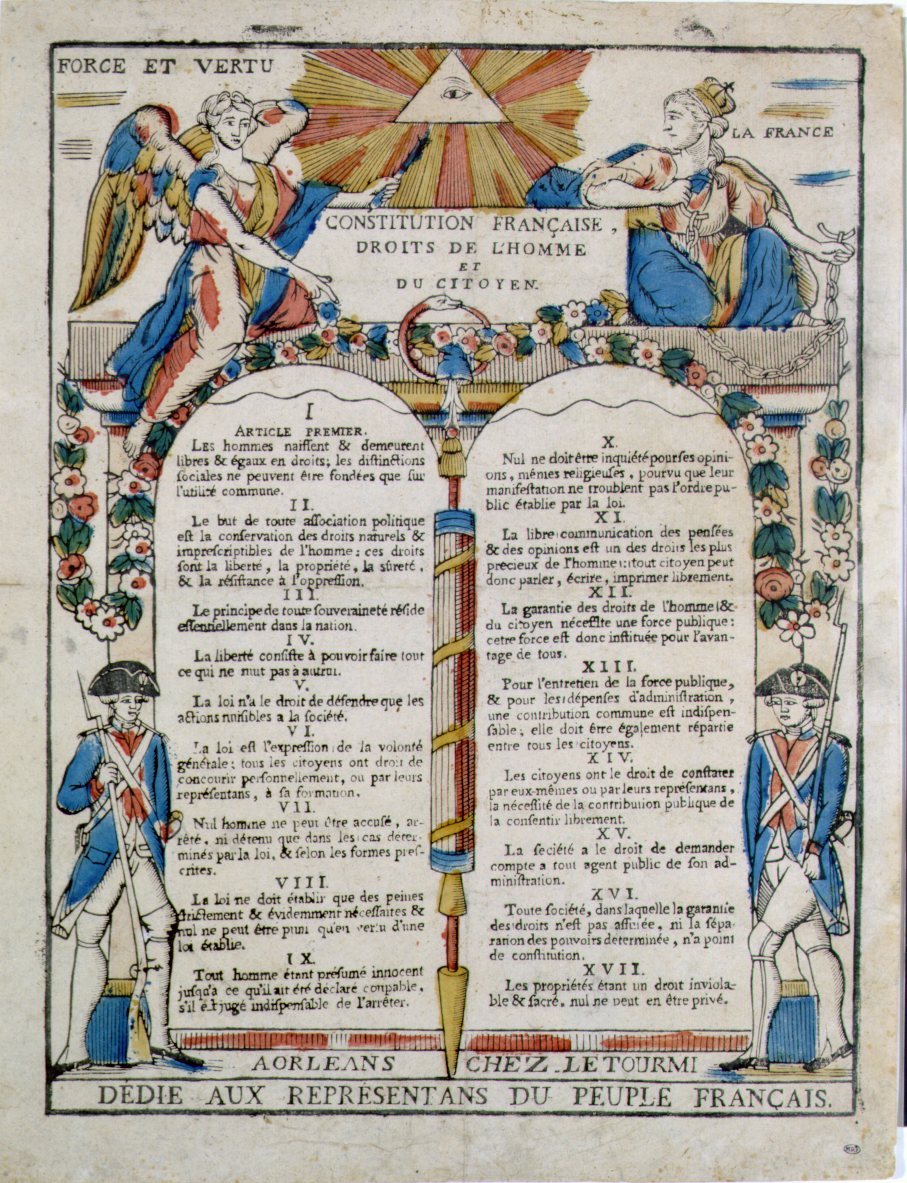 FORCE ET VERTU
LA FRANCE
CONSTITUTION FRANÇAISE,
DROITS DE L'HOMME
ET
DU CITOYEN.
I
ARTICLE PREMIER.
LES hommes naiſſent & demeurent
libres & égaux en droits; les diſtinctions
ſociales ne peuvent être fondées que ſur
l'utilité commune.
II.
Le but de toute aſſociation politique
eſt la conſervation des droits naturels &
impreſcriptibles de l'homme: ces droits
ſont la liberté, la propriété, la ſûreté,
& la réſiſtance à l'oppreſſion.
III.
Le principe de toute ſouveraineté réſide
eſſentiellement dans la nation.
IV.
La liberté conſiſte à pouvoir faire tout
ce qui ne nuit pas à autrui.
V.
La loi n'a le droit de défendre que les
actions nuiſibles a la ſociété.
VI.
La loi eſt l'expreſſion de la volonté
générale; tous les citoyens ont droit de
concourir perſonnellement, ou par leurs
repréſentans, à ſa formation.
VII.
Nul homme ne peut être accuſé, ar-
rêté, ni détenu que dans les cas déter-
minés par la loi, & ſelon les formes preſ-
crites.
VIII.
La loi ne doit établir que des peines
ſtrictement & évidemment néceſſaires &
nul ne peut être puni qu'en vertu d'une
loi établie.
IX.
Tout homme étant préſumé innocent
juſqu'a ce qu'il ait été déclaré coupable,
s'il eſt jugé indiſpenſable de l'arrêter.
X.
Nul ne doit être inquiété pour ſes opini-
ons, mêmes religieuſes, pourvu que leur
manifeſtation ne troublent pas l'ordre pu-
blic établie par la loi.
XI.
La libre communication des penſées
& des opinions eſt un des droits les plus
precieux de l'homme: tout citoyen peut
donc parler, écrire, imprimer librement.
XII.
La garantie des droits de l'homme &
du citoyen néceſſite une force publique:
cetre force eſt donc inſtituée pour l'avan-
tage de tous.
XIII.
Pour l'entretien de la force publique,
& pour les dépenſes d'adminiſtration,
une contribution commune eſt indiſpen-
ſable; elle doit être également répartie
entre tous les citoyens.
XIV.
Les citoyens ont le droit de conſtater
par eux-mêmes ou par leurs repréſentans,
la néceſſité de la contribution publique de
la conſentir librement.
XV.
La ſociété a le droit de demander
compte a tout agent public de ſon ad-
miniſtration.
XVI.
Toute ſociété, dans laquelle la garantie
des droits n'eſt pas aſſurée, ni la ſépa-
ration des pouvoirs determinée, n'a point
de conſtitution.
XVII.
Les propriétés étant un droit inviola-
ble & ſacré, nul ne peut en être privé.
A ORLEANS CHEZ LETOURMI
DÉDIE AUX REPRÉSENTANS DU PEUPLE FRANÇAIS.